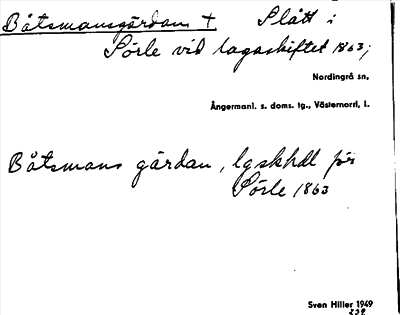 Båtsmansgärdan † Slått i
Sörle vid lagaskiftet 1863;
Nordingrå sn,
Ångermanl. s. doms. tg., Västernorrl. l.
Båtsmans gärdan, lgskhdl för
Sörle 1863
Sven Hiller 1949
239